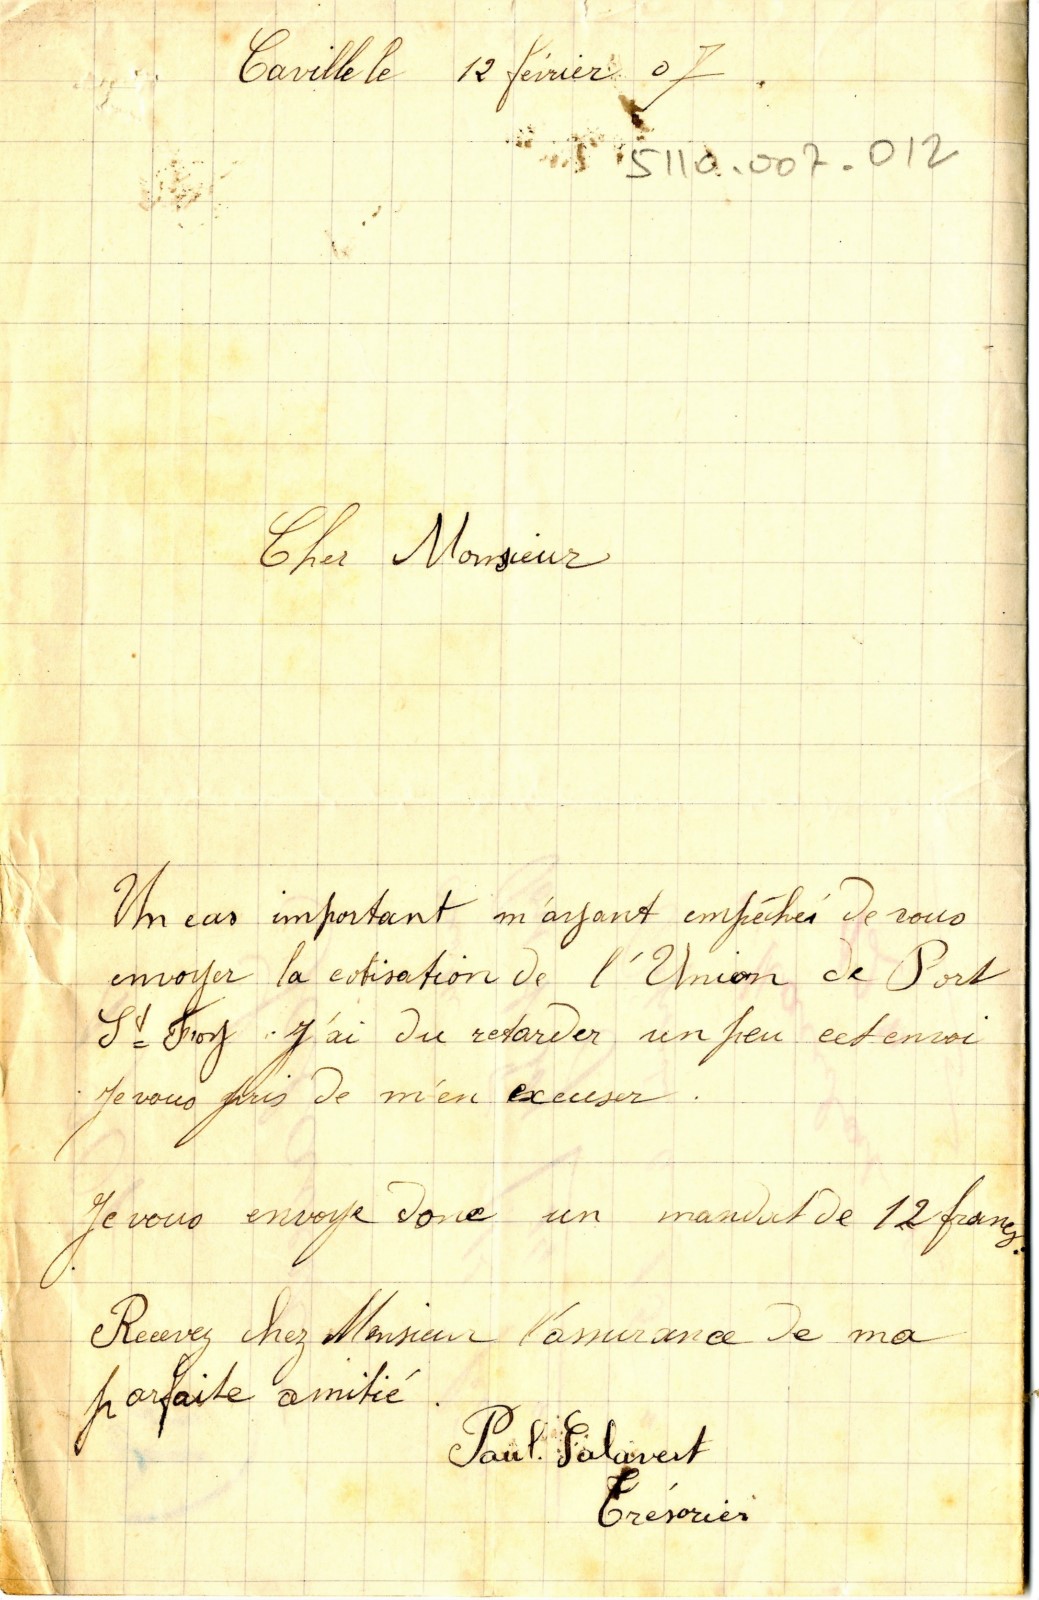 Caville le 12 février 07.
5110.007.012
Cher Monsieur
Un cas important m'ayant empêchéi de vous
envoyer la cotisation de l'Union de Port
Ste Foy. J'ai du retarder un peu cet envoi
je vous pris de m'en excuser.
Je vous envoye donc un mandat de 12 francs.
Recevez chez Monsieur l'assurance de ma
parfaite amitié.
Paul. Salavert
Trésorier